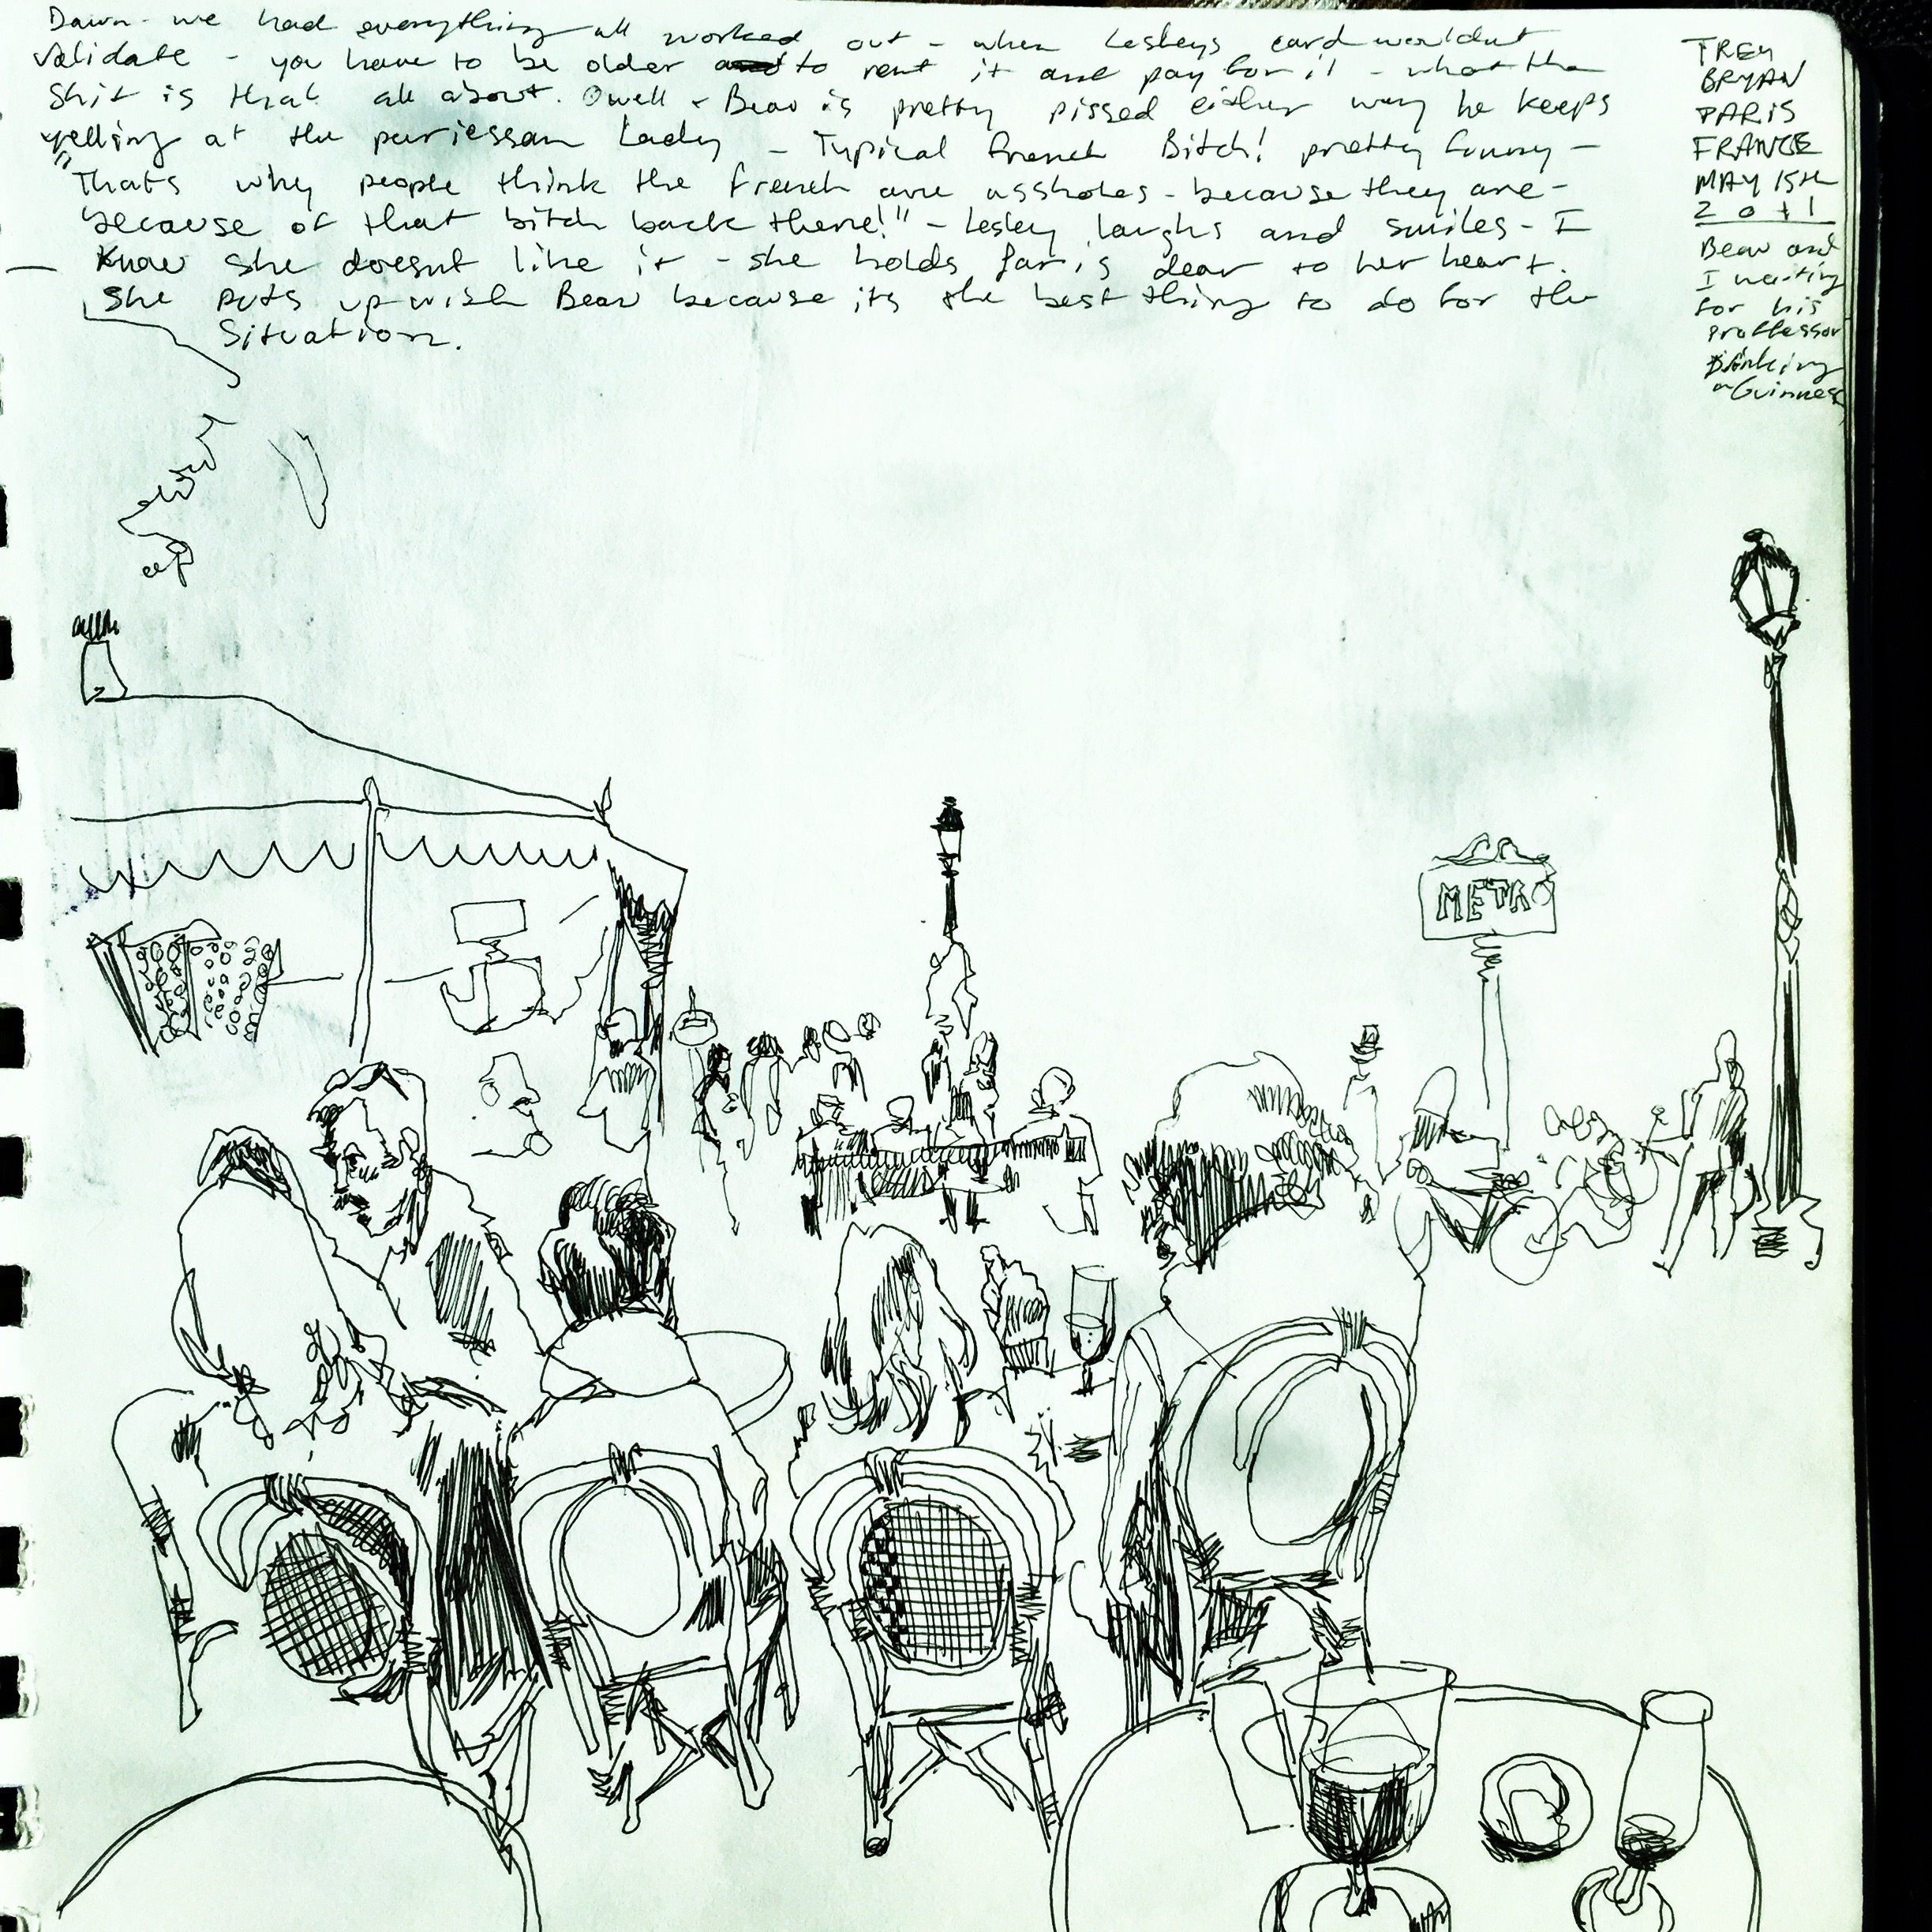 Dawn - we had everything all worked out - when Lesleys card wouldnt
validate - you have to be older to rent it and pay for it - what the
shit is that all about. Owell - Beau is pretty pissed either way he keeps
yelling at the pariessan Lady - Typical french Bitch! pretty funny -
"Thats why people think the french are assholes - because they are -
because of that bitch back there!" - Lesley laughs and smiles - I
know she doesnt like it - she holds paris dear to her heart.
She puts up wish Beau because its the best thing to do for the
Situation.
TREY
BRYAN
PARIS
FRANCE
MAY 15th
2011
Beau and
I waiting
for his
proffessor
Drinking
a Guinness
METRO